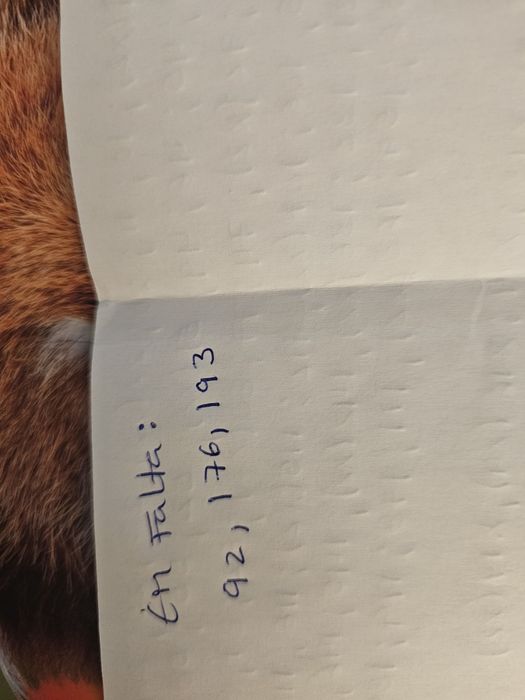 En Falta:
92, 176, 193